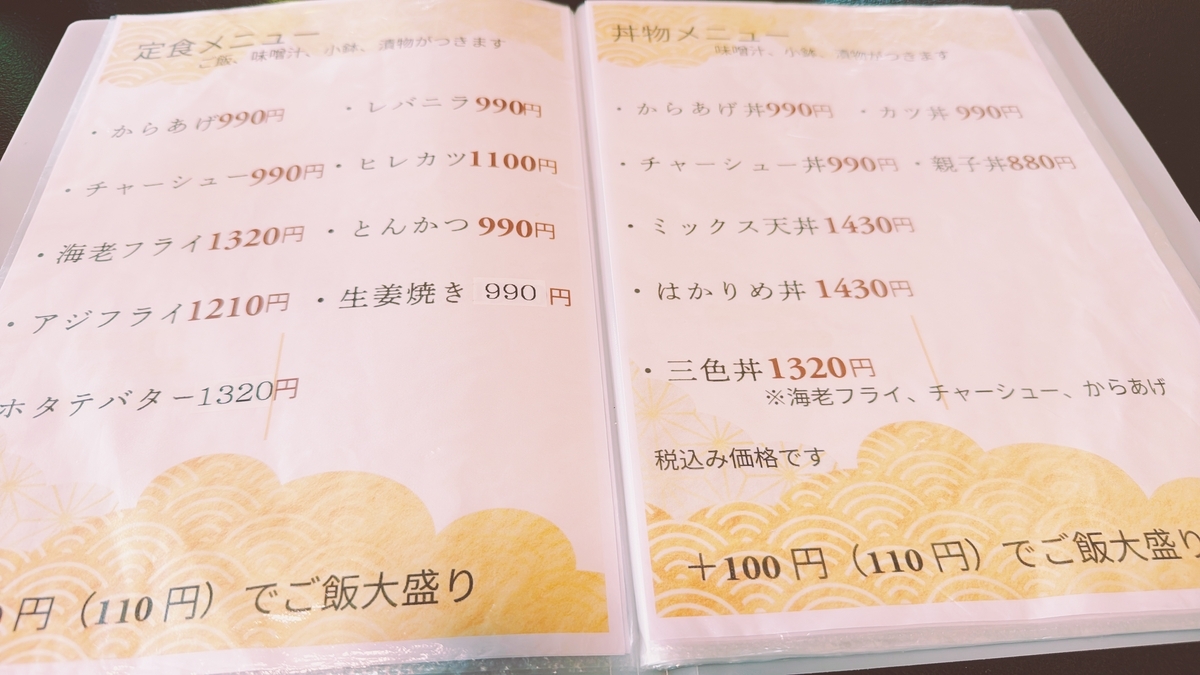 定食メニュー
ご飯、味噌汁、小鉢、漬物がつきます
・からあげ990円
・レバニラ990円
・チャーシュー990円
・ヒレカツ1100円
・海老フライ1320円
・とんかつ990円
・アジフライ1210円
・生姜焼き 990 円
ホタテバター1320円
円（110円）でご飯大盛り
丼物メニュー
味噌汁、小鉢、漬物がつきます
・からあげ丼990円
・カツ丼 990円
・チャーシュー丼990円
・親子丼880円
・ミックス天丼1430円
・はかりめ丼 1430円
・三色丼1320円
※海老フライ、チャーシュー、からあげ
税込み価格です
＋100円（110円）でご飯大盛り